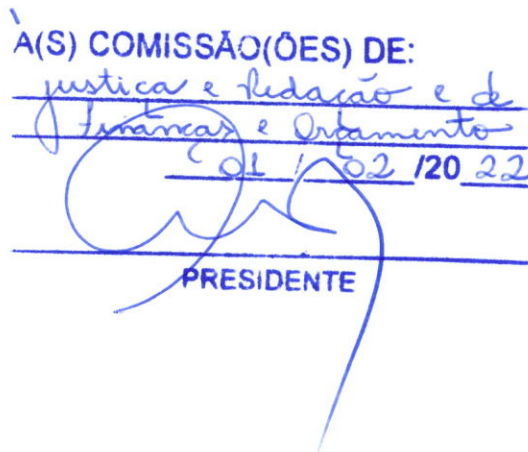 À(S) COMISSÃO(ÕES) DE:
justiça e Redação e de
Finanças e Orçamento
01 / 02 /20 22
PRESIDENTE